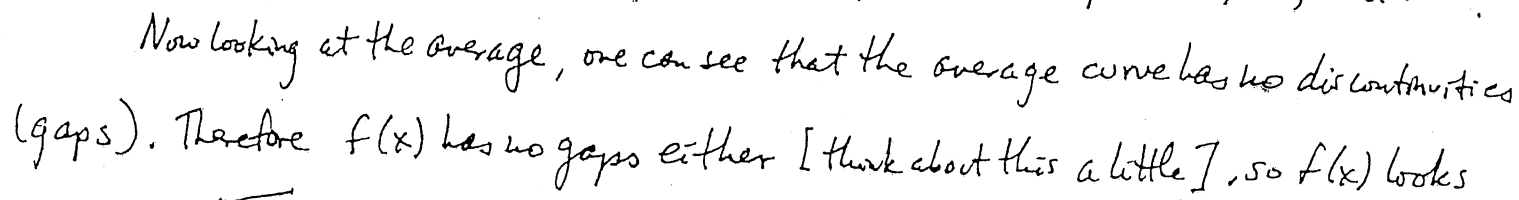 Now looking at the average, one can see that the average curve has no discontinuities
(gaps). Therefore f(x) has no gaps either [think about this a little], so f(x) looks